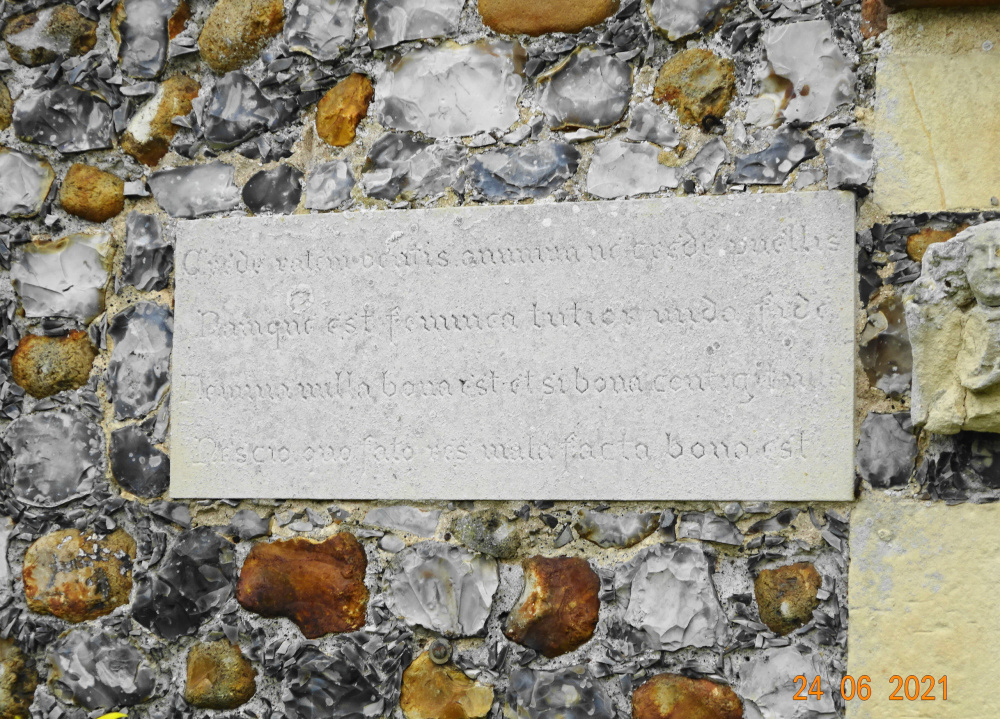 Crede ratem ventis animam ne crede puellis
Namque est feminea tutior unda fide
Femina nulla bona est et si bona contigit ulla
Nescio quo fato res mala facta bona est
24 06 2021